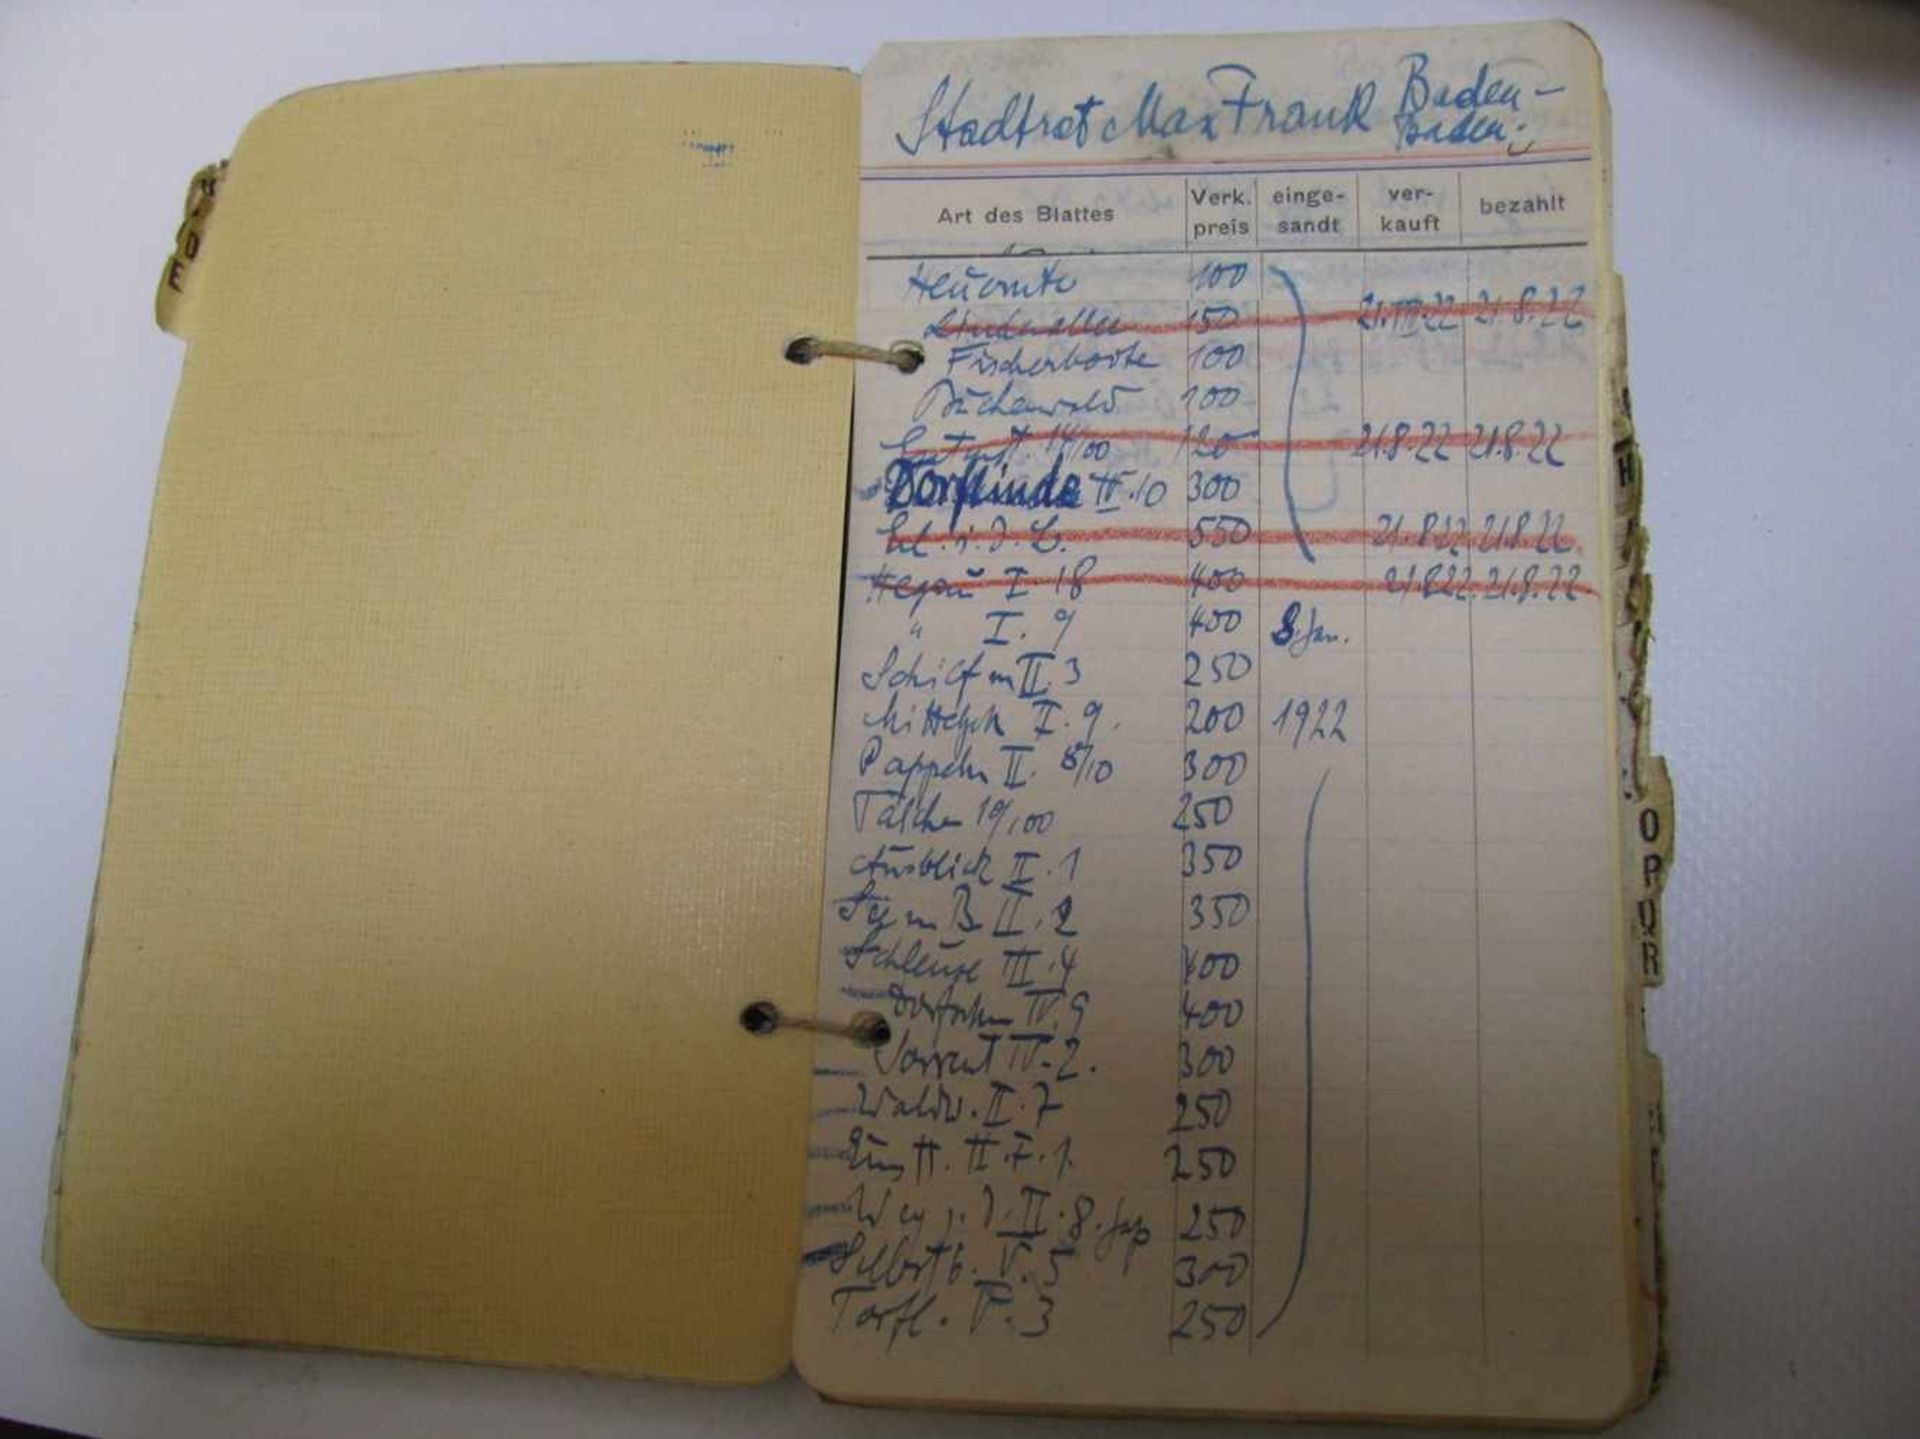 Stadtrat Max Frank Baden-
Baden.
Art des Blattes Verk. preis einge- sandt ver- kauft bezahlt
Heuernte 100
Lindenallee 150 21.VIII.22 21.8.22
Fischerboote 100
Buchenwald 100
14/100 120 21.8.22 21.8.22
Dorflinde IV.10 300
i. d. 550 21.8.22 21.8.22
Hegau I 18 400 21.8.22. 21.8.22
" I. 9 400 8. Jan.
Schilf m II. 3 250
I. 9. 200 1922
Pappeln II. 8/10 300
Tälchen 19/100 250
Ausblick II. 1 350
m B II. 2 350
Schleuse III. 4 400
IV. 9 400
Sorrent IV. 2. 300
Waldw. II. 7 250
H. II. F. 1. 250
Weg i. d. II. 8. Jap 250
Selbstb. V. 5 300
Torfl. V. 3 250
D
E
H
O
P
Q
R